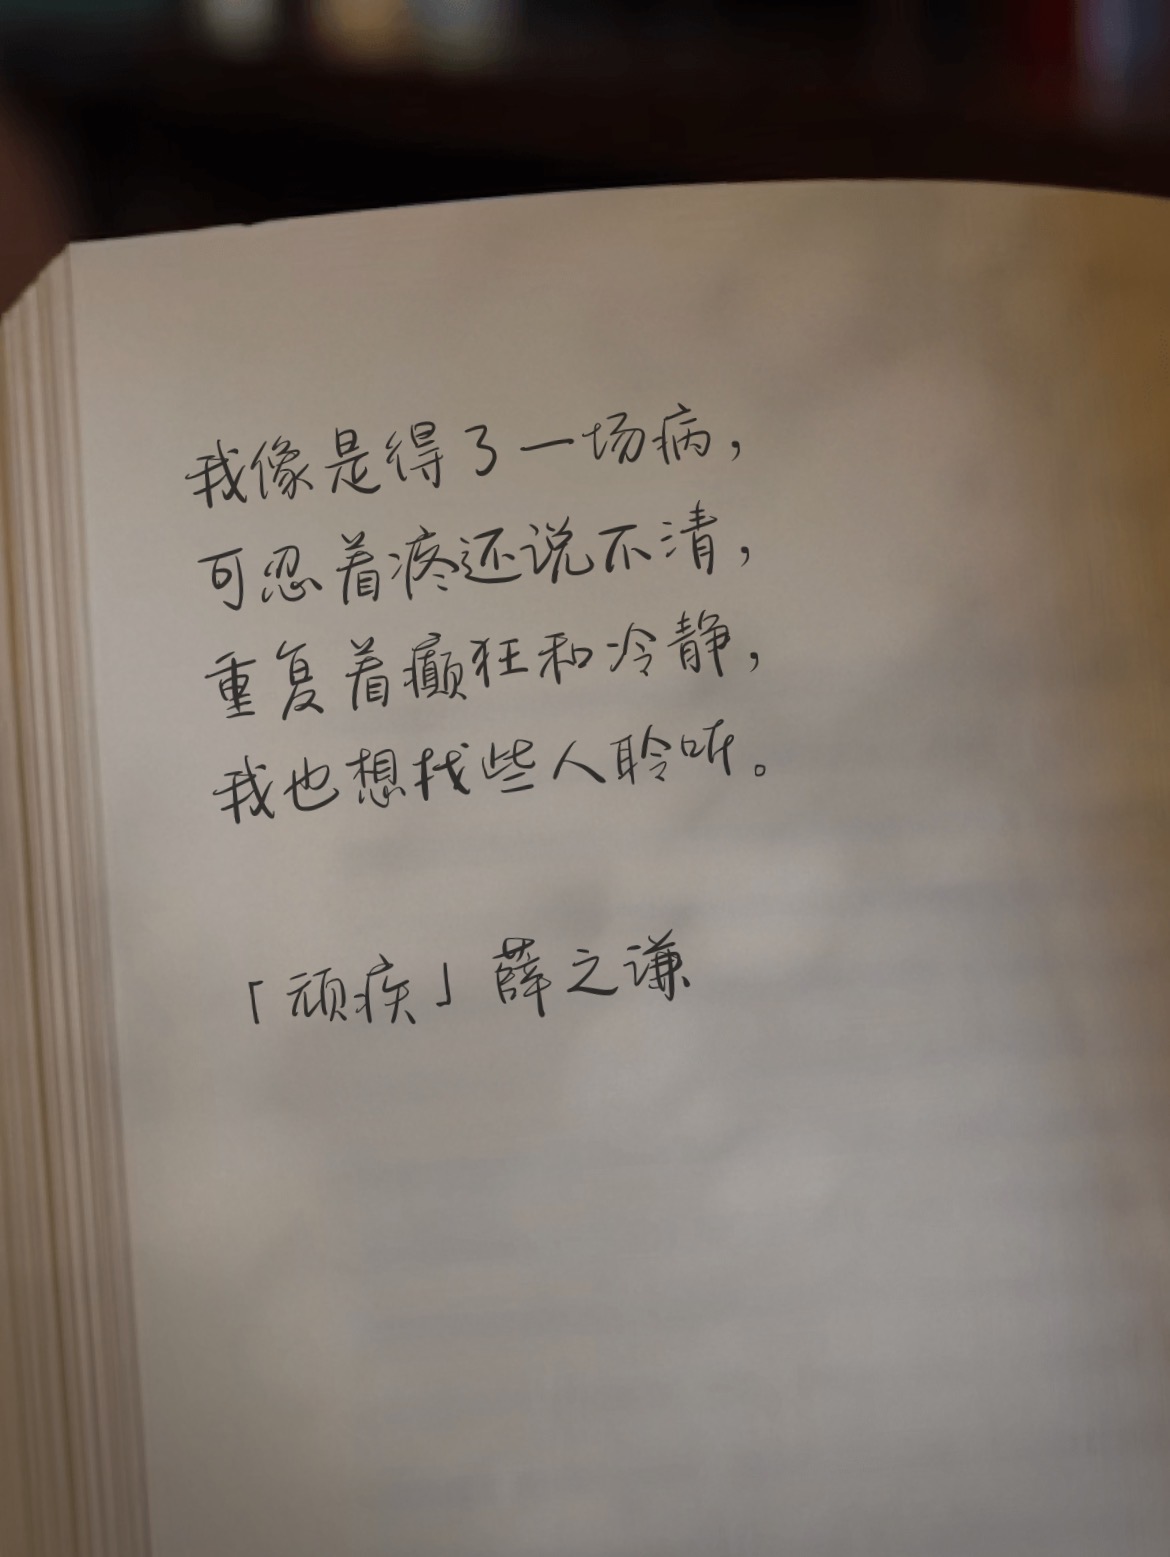 我像是得了一场病，
可忍着疼还说不清，
重复着癫狂和冷静，
我也想找些人聆听。
「顽疾」薛之谦